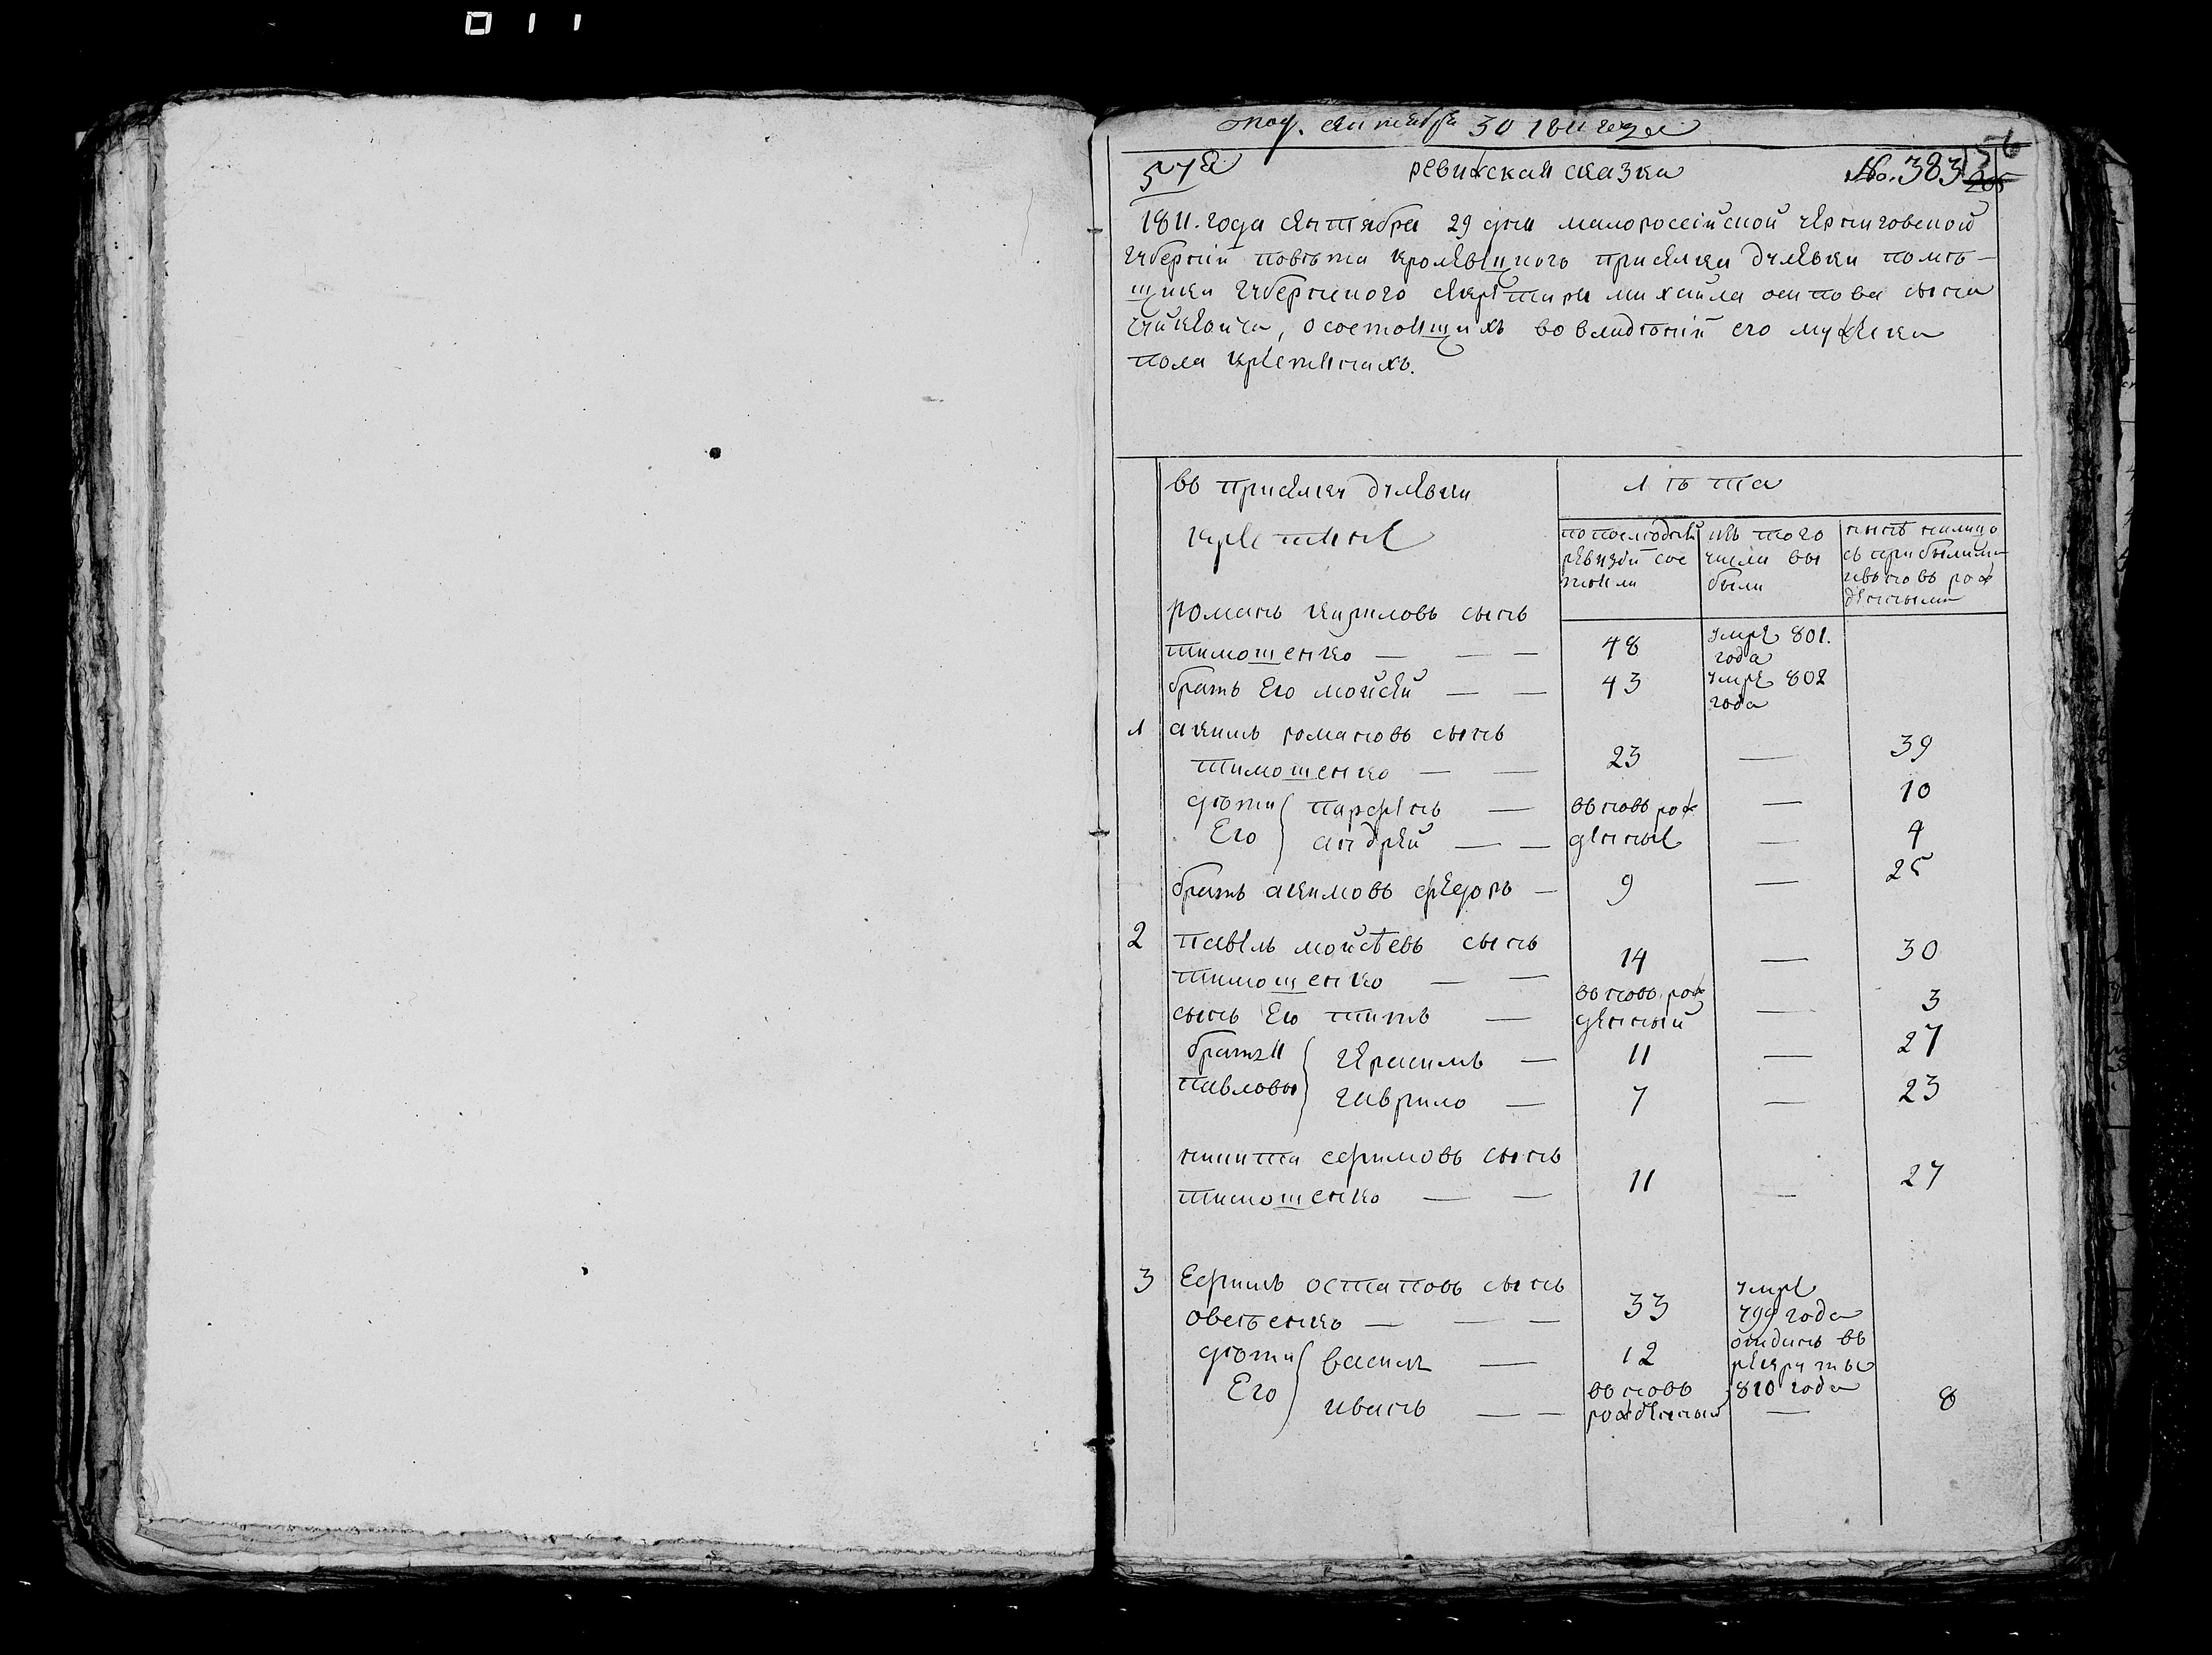 011
под. сентября 30 1811 года
572
ревижская сказка
No. 383
56
1811. года сентября 29 дня малороссійской черниговской
губерній повѣта кролевецкого присѣлка дулевки помѣ-
щика губернского секретара михайла осипова сына
о состоящихъ во владѣній его мужеска
пола крестянахъ.
въ присѣлку дулевки
крестяне
лѣта
по последней
ревизіи сос
тояли
изъ того
числа вы
были
нынѣ налицо
съ прибылими
и вновь рож
денными
романъ кириловъ сынъ
тимошенко — — — 48 умре 801.
года
братъ Его мойсей — — 43 умре 802
года
1 акимъ романовъ сынъ
тимошенко — — 23 — 39
дѣти Его парфенъ — вновь рож — 10
андрей — — денные — 4
братъ акимовъ федоръ — 9 — 25
2 павелъ мойсѣевъ сынъ
тимошенко — — 14 — 30
сынъ Его титъ — вновь рож
денный — 3
братья павловы герасимъ — 11 — 27
гаврило — 7 — 23
никита ефимовъ сынъ
тимошенко — — 11 — 27
3 Ефимъ остаповъ сынъ
овсѣенко — — — 33 умре
799 года
дѣти Его василь — 12 отданъ въ
рекруты
810 года
иванъ — — вновь
рожденный — 8